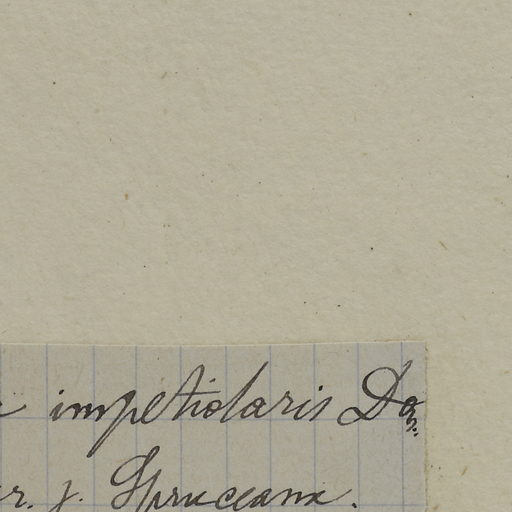 impetiolaris Don
var. γ. Spruceana.